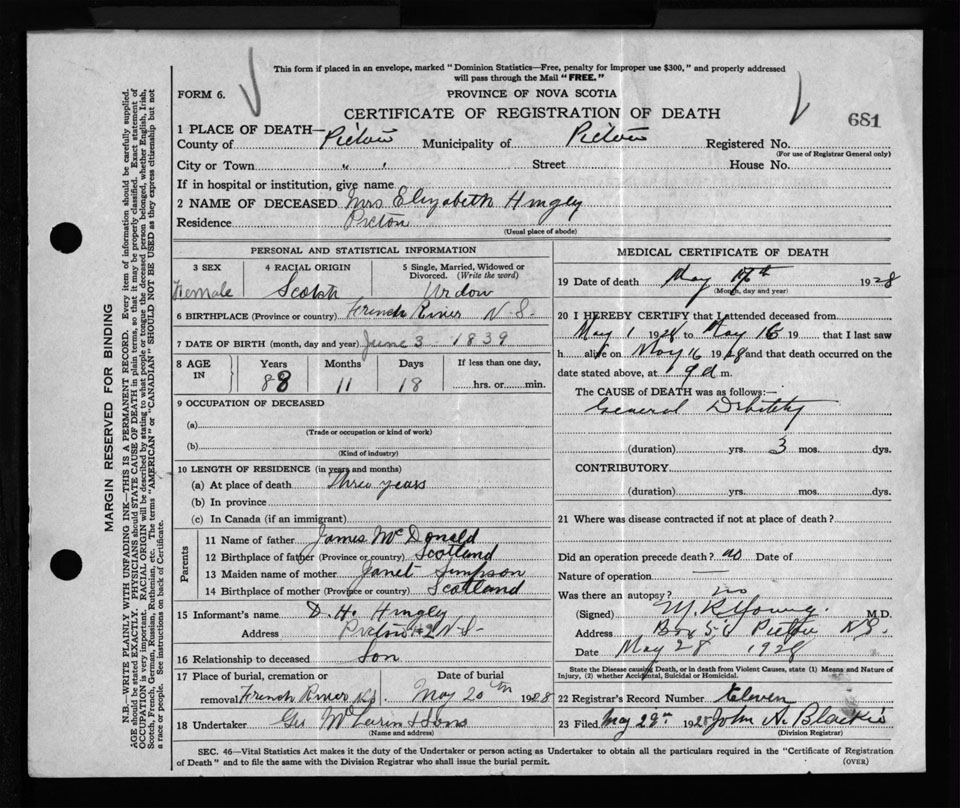 This form if placed in an envelope, marked "Dominion Statistics—Free, penalty for improper use $300," and properly addressed
will pass through the Mail "FREE."
FORM 6.
PROVINCE OF NOVA SCOTIA
CERTIFICATE OF REGISTRATION OF DEATH
681
1 PLACE OF DEATH—
County of Pictou Municipality of Pictou Registered No.
(For use of Registrar General only)
City or Town " " Street House No.
If in hospital or institution, give name
2 NAME OF DECEASED Mrs Elizabeth Hingley
Residence Pictou
(Usual place of abode)
PERSONAL AND STATISTICAL INFORMATION
3 SEX 4 RACIAL ORIGIN 5 Single, Married, Widowed or Divorced. (Write the word)
Female Scotch Widow
6 BIRTHPLACE (Province or country) French River N-S-
7 DATE OF BIRTH (month, day and year) June 3 - 1839
8 AGE IN Years Months Days If less than one day,
88 11 18 hrs. or min.
9 OCCUPATION OF DECEASED
(a)
(Trade or occupation or kind of work)
(b)
(Kind of industry)
10 LENGTH OF RESIDENCE (in years and months)
(a) At place of death Three years
(b) In province
(c) In Canada (if an immigrant)
Parents
11 Name of father James McDonald
12 Birthplace of father (Province or country) Scotland
13 Maiden name of mother Janet Simpson
14 Birthplace of mother (Province or country) Scotland
15 Informant's name D. H. Hingley
Address Pictou N-S-
16 Relationship to deceased Son
17 Place of burial, cremation or removal French River N.S. Date of burial May 20th 1928
18 Undertaker Geo McLaren & Sons
(Name and address)
MEDICAL CERTIFICATE OF DEATH
19 Date of death May 17th 1928
(Month, day and year)
20 I HEREBY CERTIFY that I attended deceased from
May 1 1928 to May 16 19 that I last saw
h alive on May 16 1928 and that death occurred on the
date stated above, at m.
The CAUSE of DEATH was as follows:—
General Debility
(duration) yrs. 3 mos. dys.
CONTRIBUTORY
(duration) yrs. mos. dys.
21 Where was disease contracted if not at place of death?
Did an operation precede death? no Date of
Nature of operation —
Was there an autopsy? no
(Signed) M. R. Young. M.D.
Address Box 56 Pictou N.S.
Date May 28 1928
State the Disease causing Death, or in death from Violent Causes, state (1) Means and Nature of
Injury, (2) whether Accidental, Suicidal or Homicidal.
22 Registrar's Record Number Eleven
23 Filed May 29th 1928 John A. Blackie
(Division Registrar)
SEC. 46—Vital Statistics Act makes it the duty of the Undertaker or person acting as Undertaker to obtain all the particulars required in the "Certificate of Registration
of Death" and to file the same with the Division Registrar who shall issue the burial permit.
(OVER)
MARGIN RESERVED FOR BINDING
N.B.—WRITE PLAINLY WITH UNFADING INK—THIS IS A PERMANENT RECORD. Every item of information should be carefully supplied.
AGE should be stated EXACTLY. PHYSICIANS should STATE CAUSE OF DEATH in plain terms, so that it may be properly classified. Exact statement of
OCCUPATION is very important. RACIAL ORIGIN will be described by stating to what people or tongue the deceased person belonged, whether English, Irish,
Scotch, French, German, Russian, Ruthenian, etc. The terms "AMERICAN" or "CANADIAN" SHOULD NOT BE USED as they express citizenship but not
a race or people. See instructions on back of Certificate.